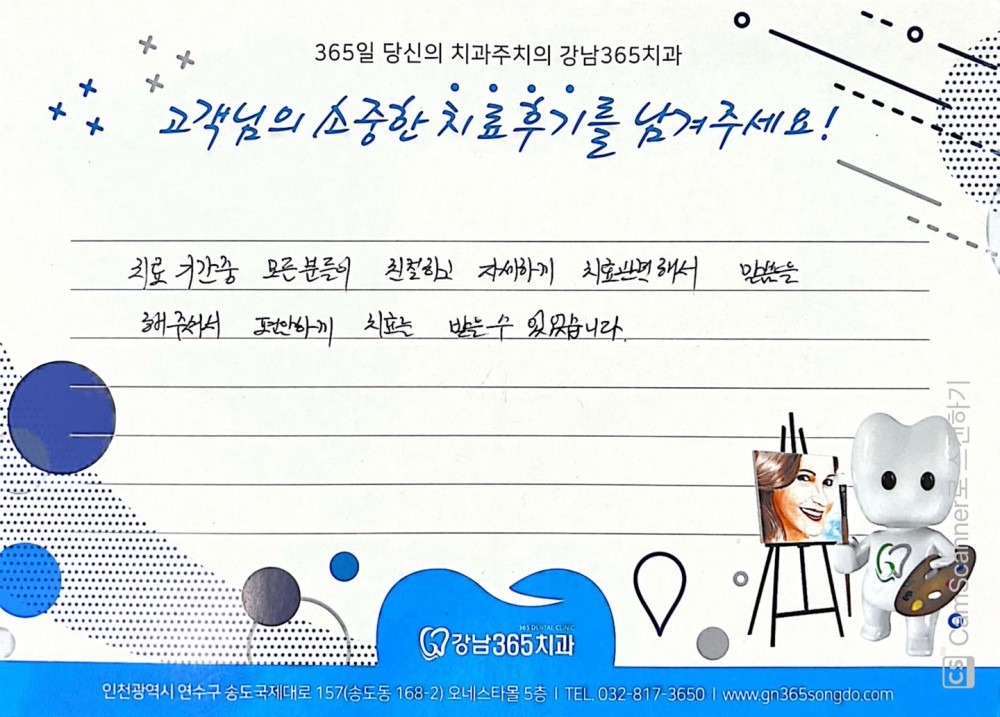 365일 당신의 치과주치의 강남365치과
고객님의 소중한 치료후기를 남겨주세요!
치료 기간중 모든분들이 친절하고 자세하게 치료 해서
해주셔서 편안하게 치료 받을수 있었습니다.
365 DENTAL CLINIC
강남365치과
인천광역시 연수구 송도국제대로 157(송도동 168-2) 오네스타몰 5층 | TEL. 032-817-3650 | www.gn365songdo.com
CS CamScanner로 스캔하기